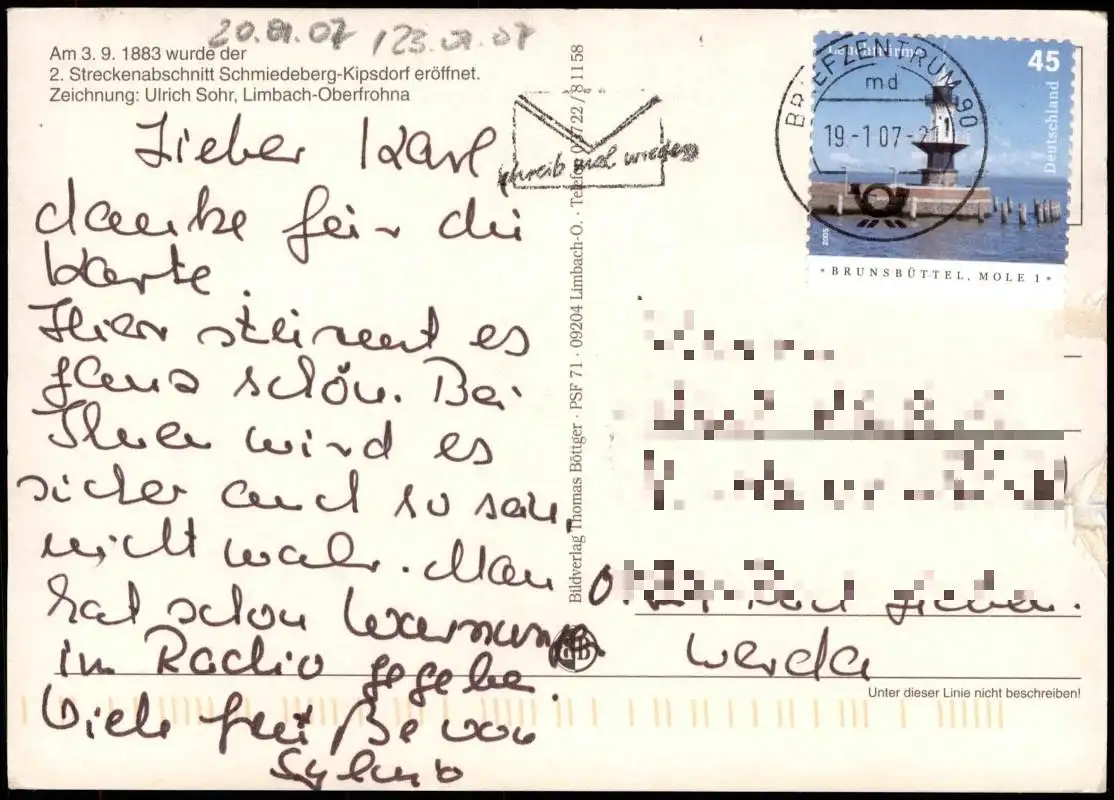 20.01.07 / 23.01.07
Am 3. 9. 1883 wurde der
2. Streckenabschnitt Schmiedeberg-Kipsdorf eröffnet.
Zeichnung: Ulrich Sohr, Limbach-Oberfrohna
Lieber Karl
danke für die
Karte.
Hier stürmt es
ganz schön. Bei
Ihnen wird es
sicher auch so sein,
nicht wahr. Man
hat schon Warnung
im Radio gegeben.
Viele Grüße von
Bildverlag Thomas Böttger · PSF 71 · 09204 Limbach-O. · Telefon 03722/81158
schreib mal wieder
BRIEFZENTRUM 90
md
19.-1 07-21
Leuchttürme
45
Deutschland
2005
* BRUNSBÜTTEL, MOLE 1 *
werda
Unter dieser Linie nicht beschreiben!